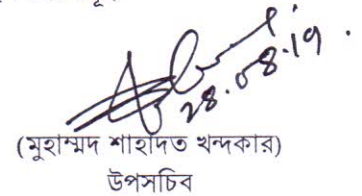 28.08.19
(মুহাম্মদ শাহাদত খন্দকার)
উপসচিব